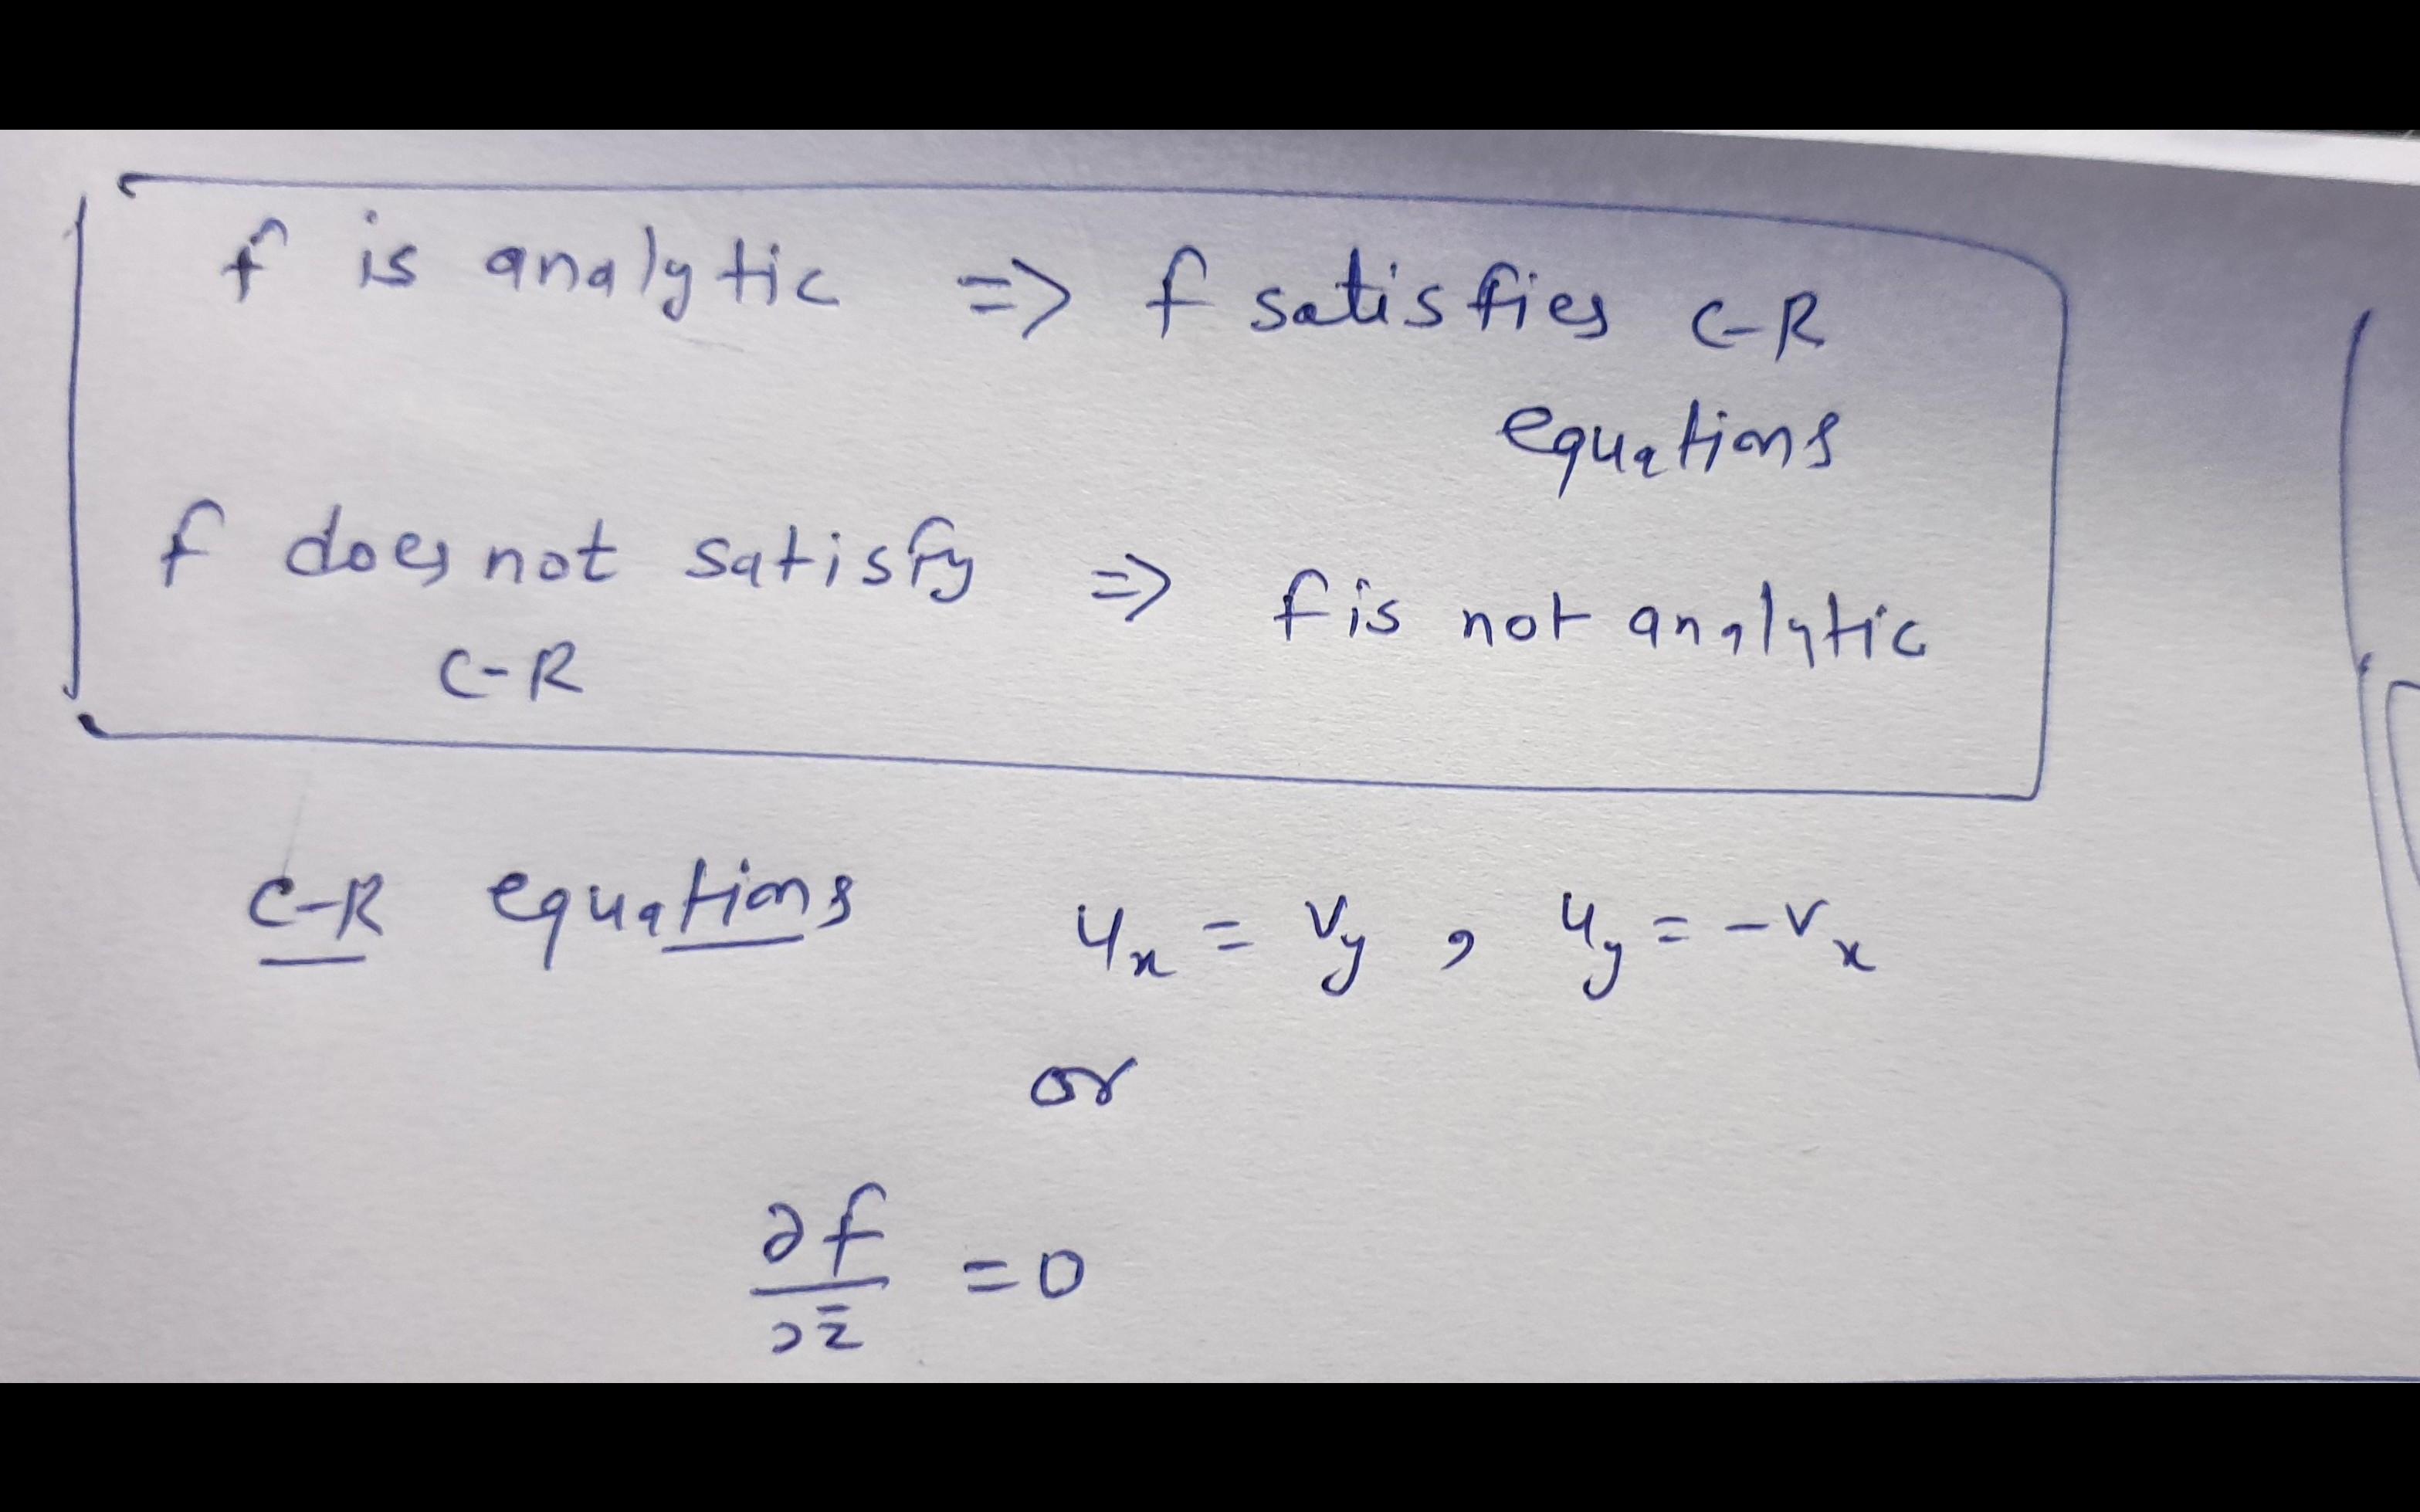 f is analytic => f satisfies C-R
equations
f does not satisfy => f is not analytic
C-R
C-R equations u_x = v_y , u_y = -v_x
or
∂f/∂z̄ = 0